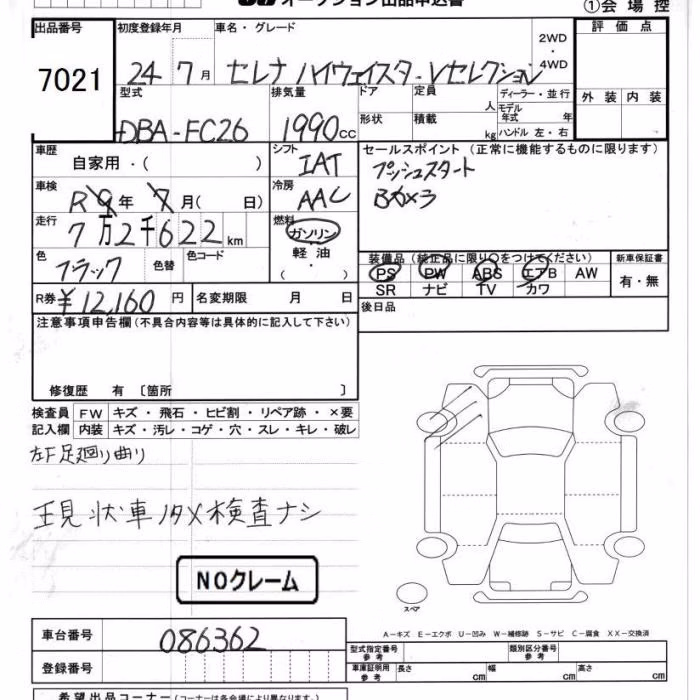 オークション出品申込書
①会場控
出品番号
7021
初度登録年月
24 7月
車名・グレード
セレナ ハイウェイスターVセレクション
2WD
・
4WD
評価点
外装 内装
型式
DBA-FC26
排気量
1990cc
ドア
定員
人
ディーラー・並行
モデル年式 年
形状
積載
kg
ハンドル 左・右
車歴
自家用・( )
シフト
IAT
セールスポイント (正常に機能するものに限ります)
プッシュスタート
Bカメラ
車検
R9年7月( 日)
冷房
AAC
走行
7万2千622km
燃料
ガソリン
軽油
・
( )
色
ブラック
色替
色コード
装備品 (純正品に限り○をつけてください)
PS PW ABS エアB AW
SR ナビ TV カワ
新車保証書
有・無
R券 ¥12,160 円
名変期限 月 日
後日品
注意事項申告欄(不具合内容等は具体的に記入して下さい)
修復歴 有 〔箇所 〕
検査員記入欄
FW キズ・飛石・ヒビ割・リペア跡・×要
内装 キズ・汚レ・コゲ・穴・スレ・キレ・破レ
左F足廻り曲り
現状車ノタメ検査ナシ
NOクレーム
スペア
A-キズ E-エクボ U-凹み W-補修跡 S-サビ C-腐食 XX-交換済
車台番号
086362
登録番号
型式指定番号
参考
類別区分番号
参考
車庫証明用
参考
長さ cm
幅 cm
高さ cm
希望出品コーナー (コーナーは各会場により異なります。)